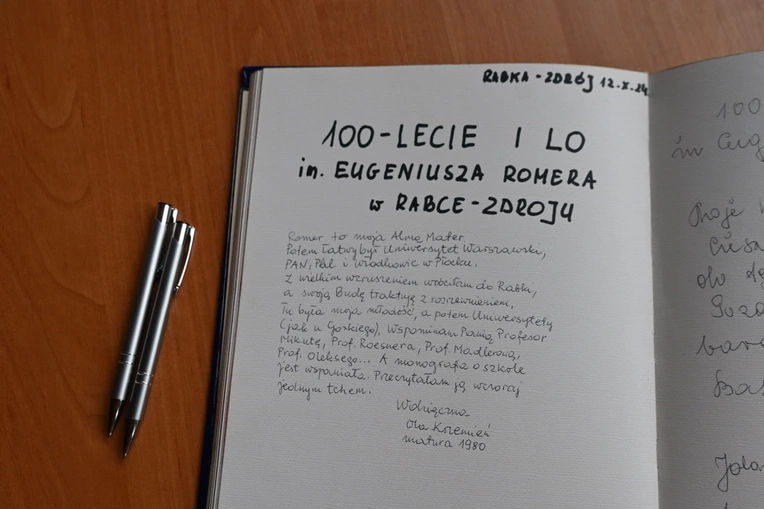 RABKA - ZDRÓJ 12.X.24
100-LECIE I LO
im. EUGENIUSZA ROMERA
w RABCE-ZDROJU
Romer to moja Alma Mater.
Potem łatwy był Uniwersytet Warszawski,
PAN, i Włodkowic w Płocku.
Z wielkim wzruszeniem wróciłam do Rabki,
a swoją Budę traktuję z rozrzewnieniem.
Tu była moja młodość, a potem Uniwersytety
(jak u Gorkiego). Wspominam Panią Profesor
Mikułę, Prof. Roesnera, Prof. Madlerową,
Prof. Oleksego... A monografia o szkole
jest wspaniała. Przeczytałam ją wczoraj
jednym tchem.
Wdzięczna
Ola Krzemień
matura 1980
100
im Eug
Moje
do
bar